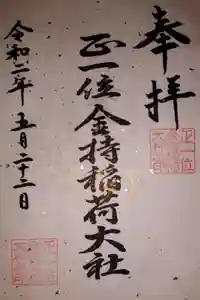 奉拝
正一位金持稲荷大社
令和二年五月二十二日